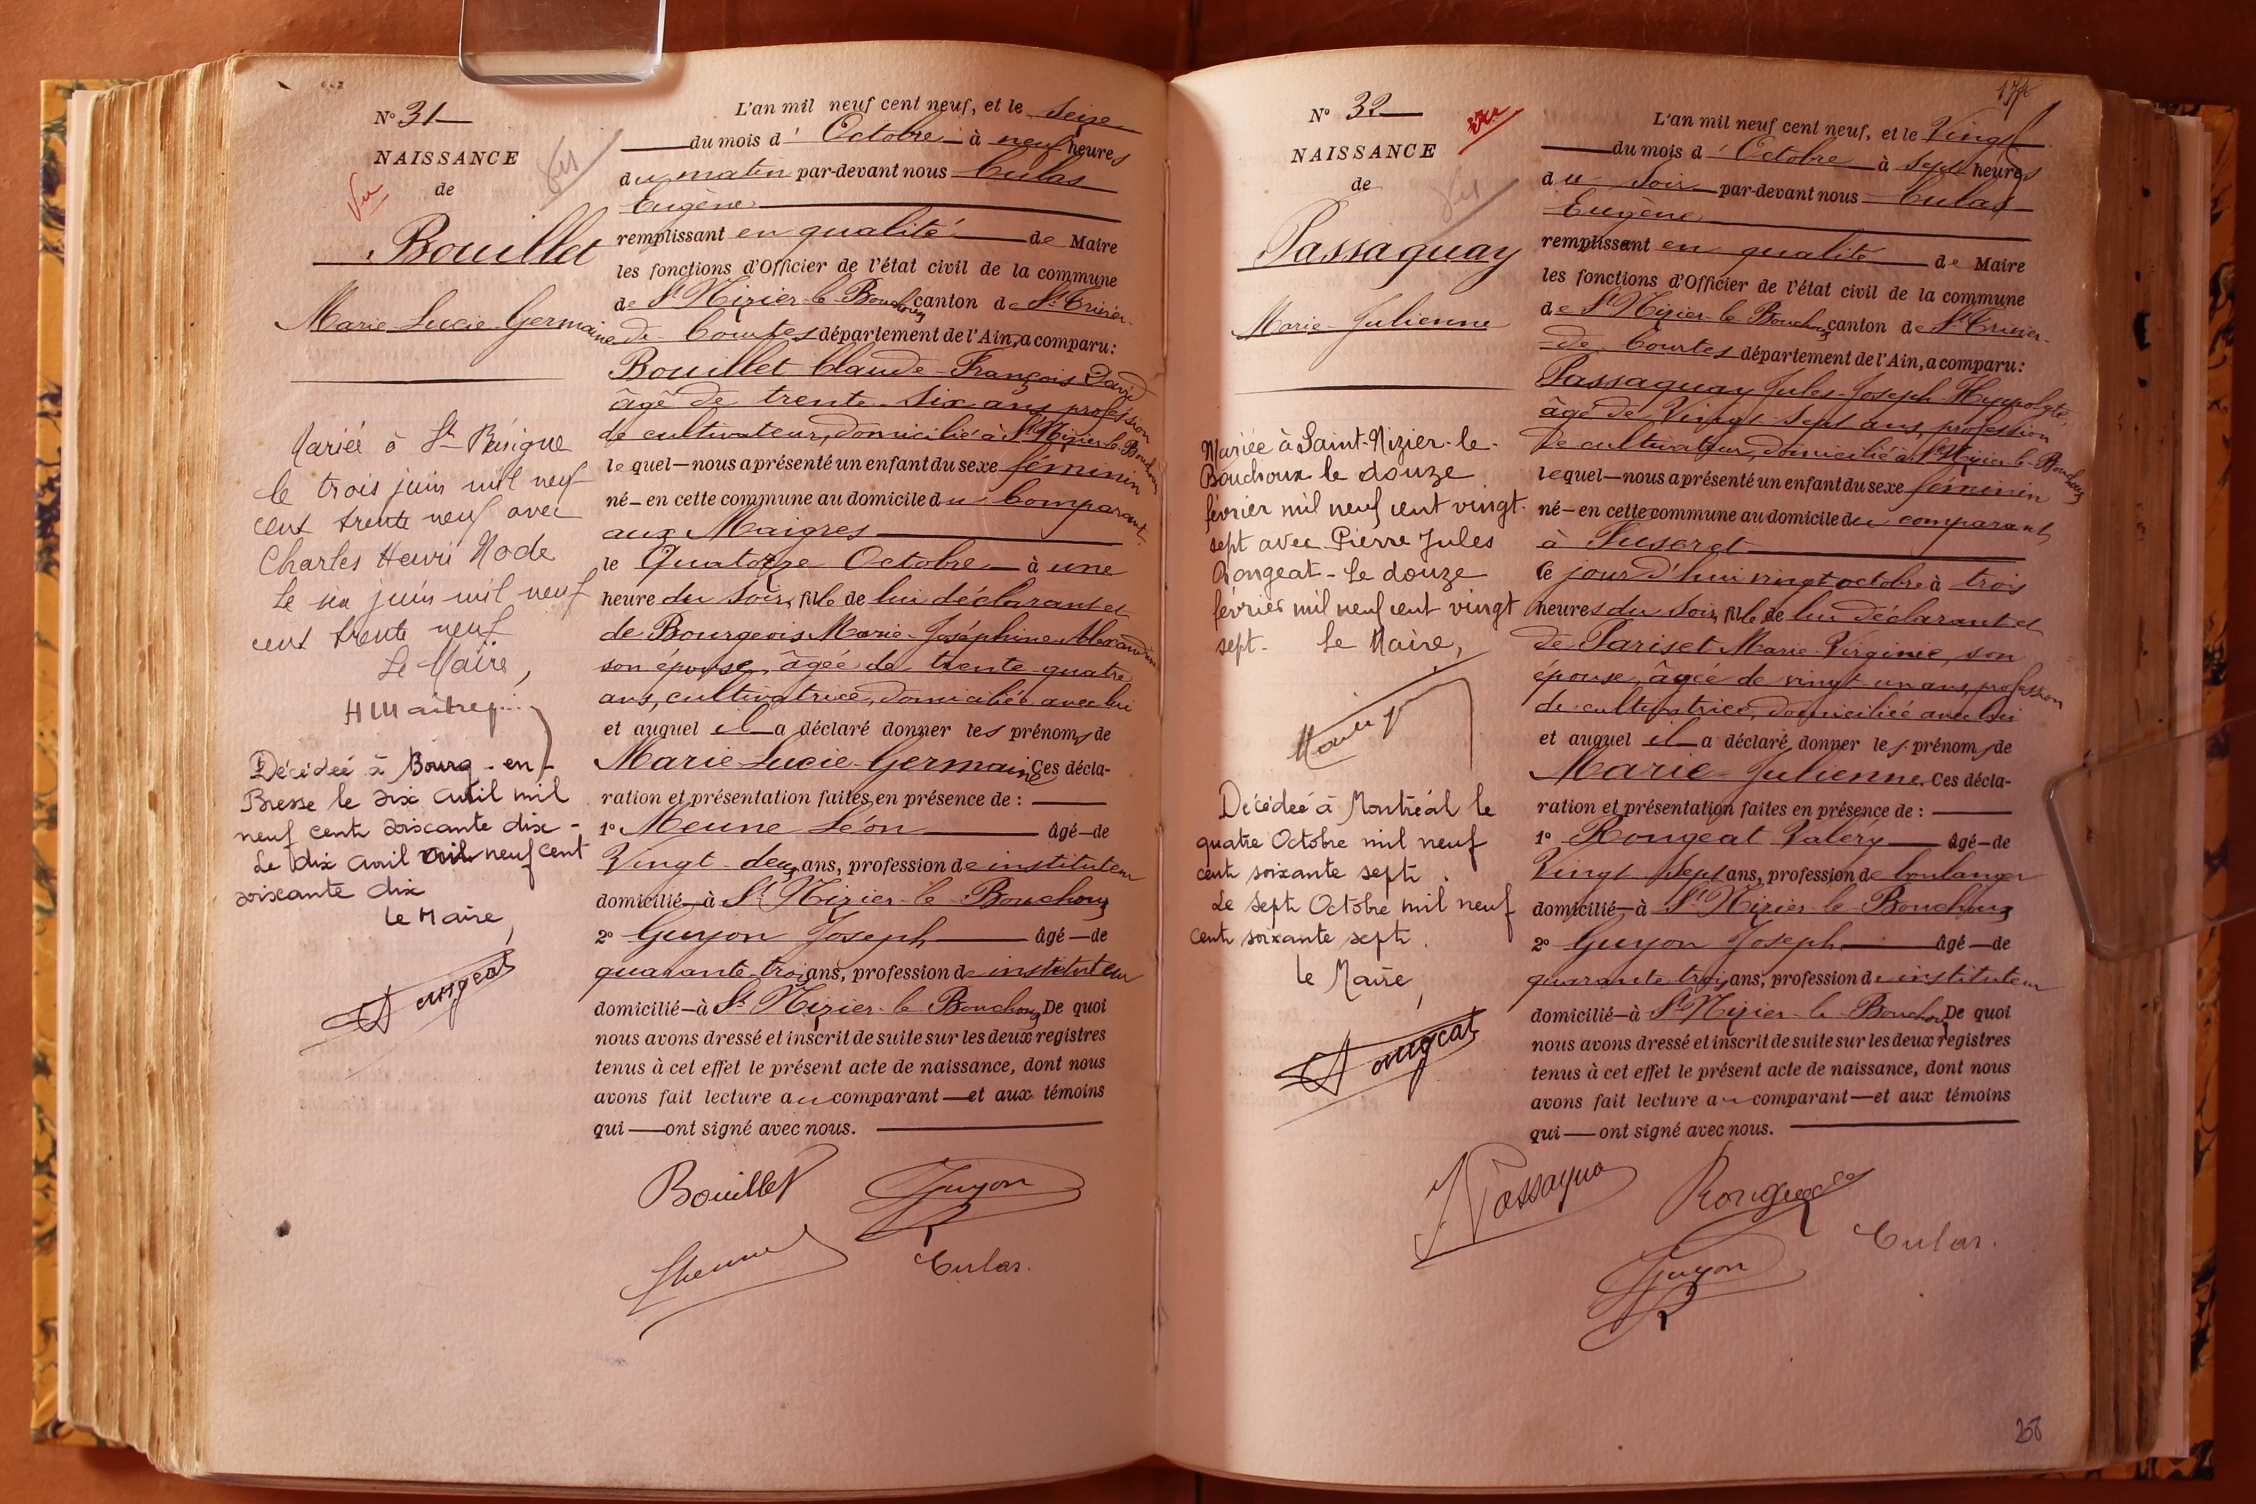 N° 31
NAISSANCE
de
Vu
Bouillet
Marie Lucie Germaine
Mariée à St Bénigne
le trois juin mil neuf
cent trente neuf avec
Charles Henri Node
Le six juin mil neuf
cent trente neuf
Le Maire,
Décédée à Bourg-en-
Bresse le dix avril mil
neuf cent soixante dix -
Le dix avril neuf cent
soixante dix
Le Maire,
L'an mil neuf cent neuf, et le seize
du mois d' Octobre à neuf heures
du matin par-devant nous Culas
Eugène
remplissant en qualité de Maire
les fonctions d'Officier de l'état civil de la commune
de St Nizier-le-Bouchoux canton de St Trivier-
de-Courtes département de l'Ain, a comparu:
Bouillet Claude-François David
âgé de trente-six ans, profession
de cultivateur, domicilié à St Nizier-le-Bouchoux
lequel—nous a présenté un enfant du sexe féminin
né-en cette commune au domicile du Comparant,
aux Maigres
le Quatorze Octobre à une
heure du soir, fille de lui déclarant et
de Bourgeois Marie-Joséphine Alexandrine
son épouse, âgée de trente-quatre
ans, cultivatrice, domiciliée avec lui
et auquel il a déclaré donner les prénoms de
Marie-Lucie-Germaine Ces décla-
ration et présentation faites en présence de :
1° Meune Léon âgé—de
Vingt-deux ans, profession de instituteur
domicilié—à St Nizier-le-Bouchoux
2° Guyon Joseph âgé—de
quarante-trois ans, profession de instituteur
domicilié—à St Nizier-le-Bouchoux De quoi
nous avons dressé et inscrit de suite sur les deux registres
tenus à cet effet le présent acte de naissance, dont nous
avons fait lecture au comparant—et aux témoins
qui—ont signé avec nous.
Bouillet Guyon
Culas.
N° 32
NAISSANCE
de
Passaquay
Marie-Julienne
Mariée à Saint-Nizier-le-
Bouchoux le douze
février mil neuf cent vingt-
sept avec Pierre Jules
Rongeat - Le douze
février mil neuf cent vingt
sept - Le Maire,
Décédée à Montréal le
quatre Octobre mil neuf
cent soixante sept.
Le Sept Octobre mil neuf
cent soixante sept.
Le Maire,
L'an mil neuf cent neuf, et le Vingt
du mois d' Octobre à sept heures
du soir par-devant nous Culas
Eugène
remplissant en qualité de Maire
les fonctions d'Officier de l'état civil de la commune
de St Nizier-le-Bouchoux canton de St Trivier-
de-Courtes département de l'Ain, a comparu:
Passaquay Jules-Joseph-Hyppolyte,
âgé de Vingt-sept ans, profession
de cultivateur, domicilié à St Nizier-le-Bouchoux
lequel—nous a présenté un enfant du sexe féminin
né-en cette commune au domicile du comparant
à
Ce jour d'hui vingt octobre à trois
heures du soir, fille de lui déclarant et
de Pariset Marie-Virginie, son
épouse, âgée de vingt-un ans, profession
de cultivatrice, domiciliée avec lui
et auquel il a déclaré donner les prénoms de
Marie-Julienne. Ces décla-
ration et présentation faites en présence de :
1° Rongeat Valéry âgé—de
Vingt-Sept ans, profession de boulanger
domicilié—à St Nizier-le-Bouchoux
2° Guyon Joseph âgé—de
quarante trois ans, profession de instituteur
domicilié—à St Nizier-le-Bouchoux De quoi
nous avons dressé et inscrit de suite sur les deux registres
tenus à cet effet le présent acte de naissance, dont nous
avons fait lecture au comparant—et aux témoins
qui—ont signé avec nous.
Guyon
Culas.